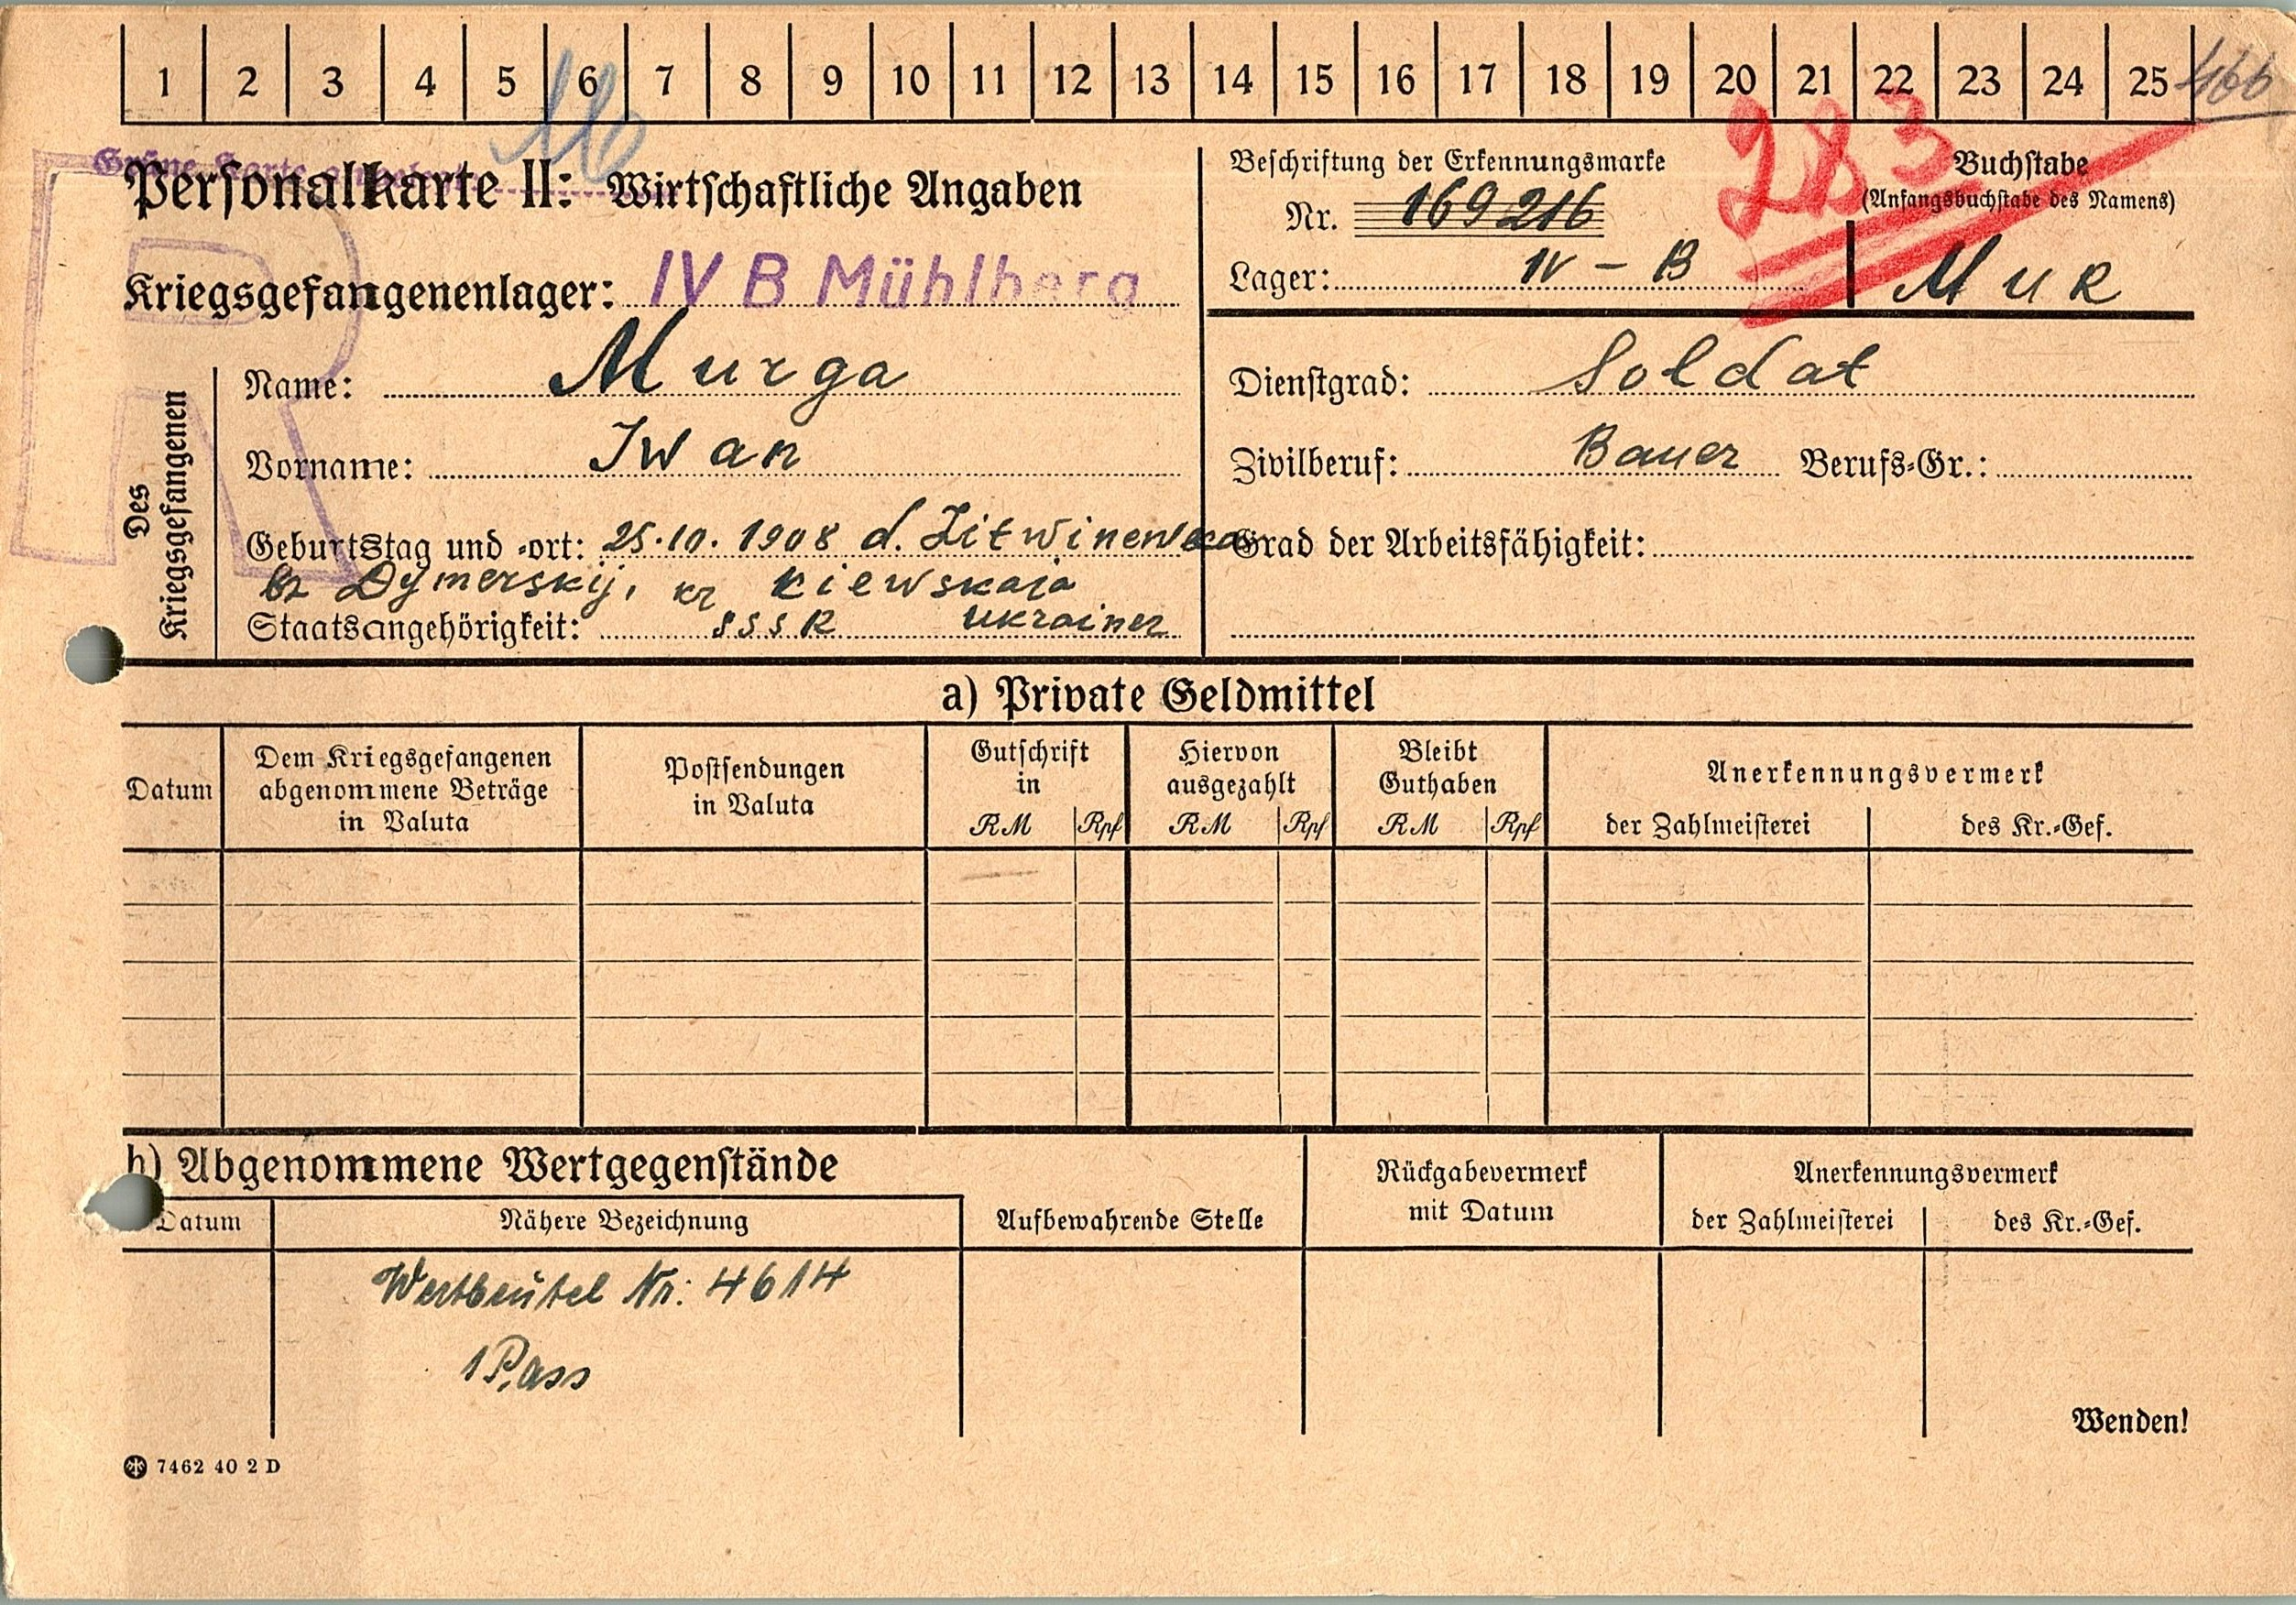 1 2 3 4 5 6 7 8 9 10 11 12 13 14 15 16 17 18 19 20 21 22 23 24 25 466
16
283
Grüne Karte
Personalkarte II: Wirtschaftliche Angaben
Beschriftung der Erkennungsmarke
Nr. 169216
Lager: IV – B
Buchstabe
(Anfangsbuchstabe des Namens)
Mur
Kriegsgefangenenlager: IV B Mühlberg
Des Kriegsgefangenen
Name: Murga
Dienstgrad: Soldat
Vorname: Iwan
Zivilberuf: Bauer Berufs-Gr.:
Geburtstag und -ort: 25.10.1908 d. Litwinewka
Grad der Arbeitsfähigkeit:
bz Dymerskij, kr Kiewskaja
Staatsangehörigkeit: SSSR Ukrainer
a) Private Geldmittel
Datum
Dem Kriegsgefangenen abgenommene Beträge in Valuta
Postsendungen in Valuta
Gutschrift in RM Rpf
Hiervon ausgezahlt RM Rpf
Bleibt Guthaben RM Rpf
Anerkennungsvermerk
der Zahlmeisterei des Kr.-Gef.
b) Abgenommene Wertgegenstände
Datum
Nähere Bezeichnung
Aufbewahrende Stelle
Rückgabevermerk mit Datum
Anerkennungsvermerk
der Zahlmeisterei des Kr.-Gef.
Wertbeutel Nr: 4614
1 Pass
Wenden!
7462 40 2 D